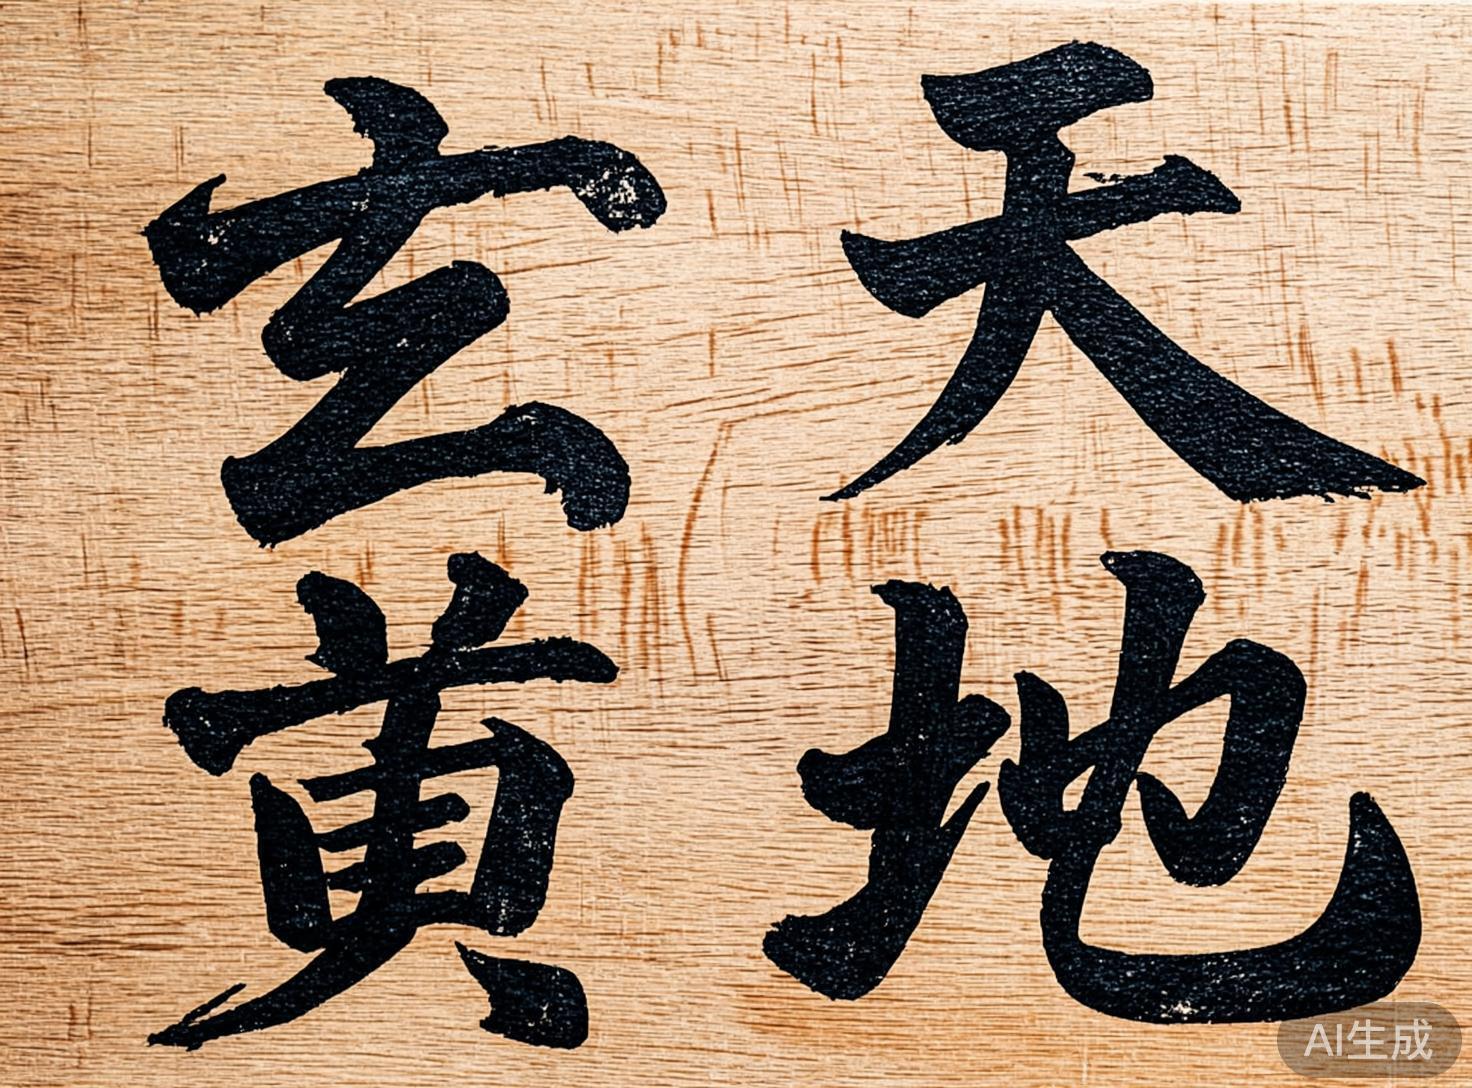 天地
玄黄
AI生成